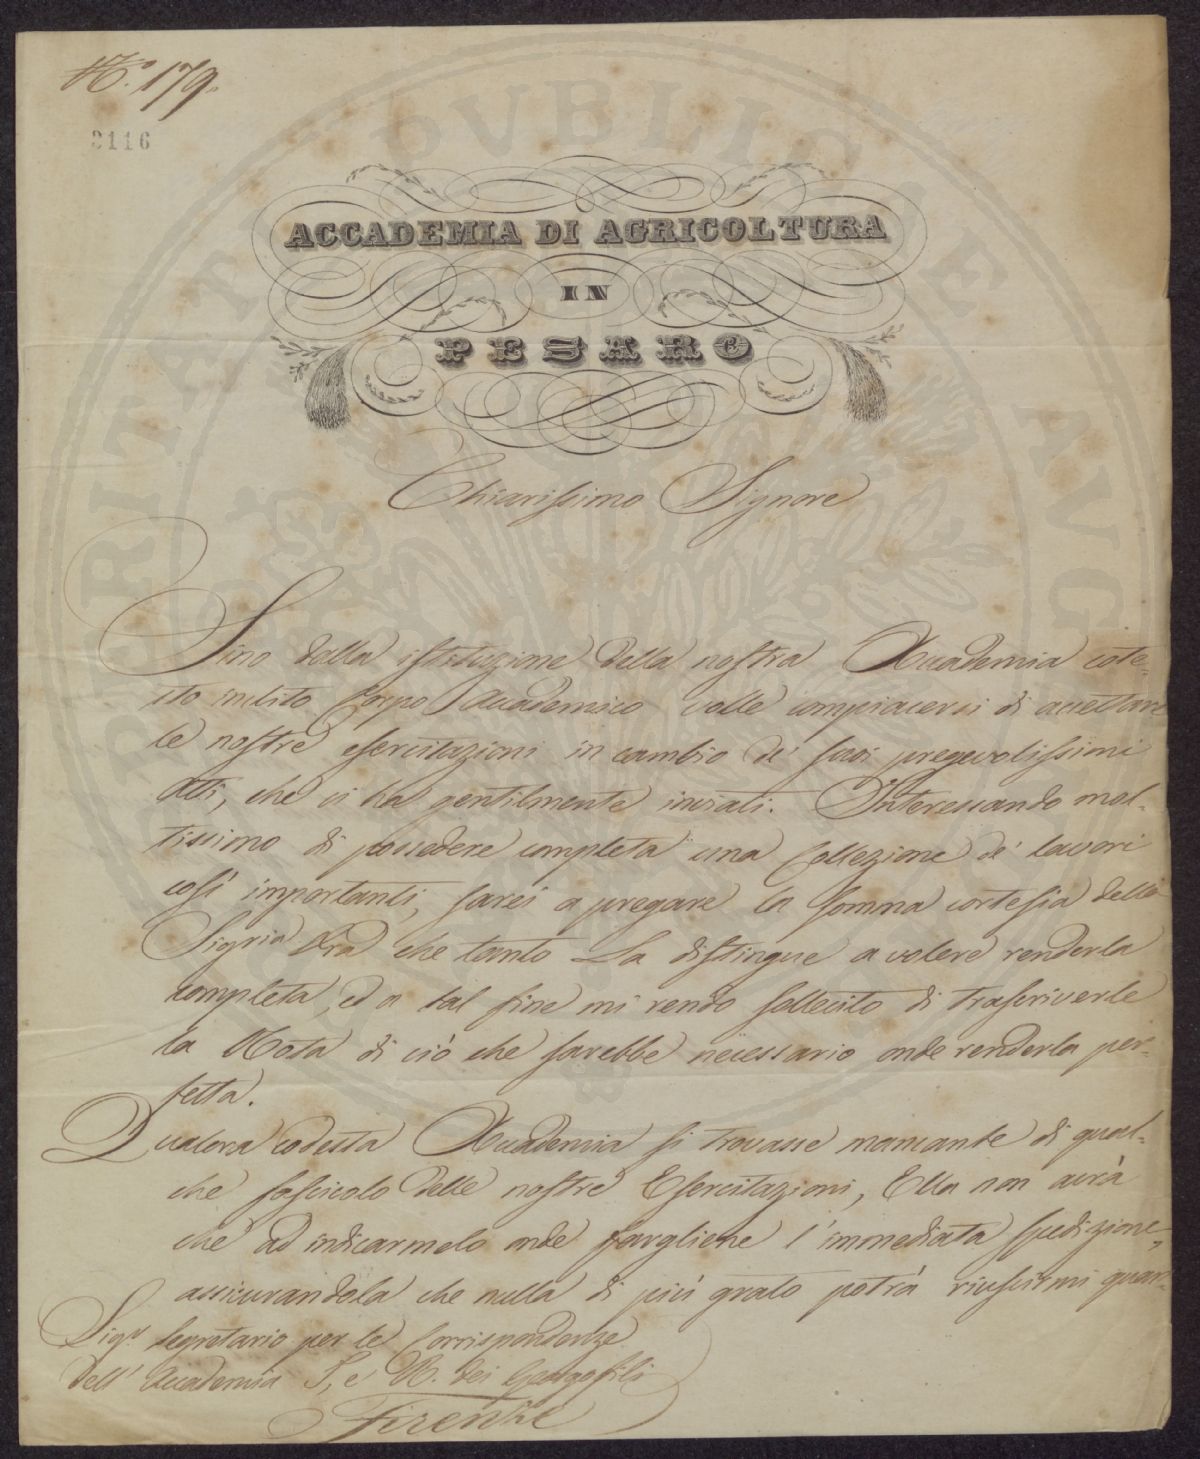 N.º 179.
3116
ACCADEMIA DI AGRICOLTURA
IN
PESARO
Chiarissimo Signore
Sino dalla istituzione della nostra Accademia cote-
sto inclito Corpo Accademico volle compiacersi di accettare
le nostre esercitazioni in cambio de' suoi pregevolissimi
Atti, che ci ha gentilmente inviati. Interessando mol-
tissimo di possedere completa una Collezione de' lavori
così importanti, sarei a pregare la somma cortesia della
Sigria Vra che tanto La distingue a volere renderla
completa, ed a tal fine mi rendo sollecito di trascriverle
la Nota di ciò che sarebbe necessario onde renderla per-
fetta.
Qualora codesta Accademia si trovasse mancante di qual-
che fascicolo delle nostre Esercitazioni, Ella non avrà
che ad indicarmelo onde fargliene l'immediata spedizione,
assicurandola che nulla di più grato potrà riuscirmi quan-
Sigr Segretario per le Corrispondenze
Dell' Accademia I. e R. dei Georgofili
Firenze